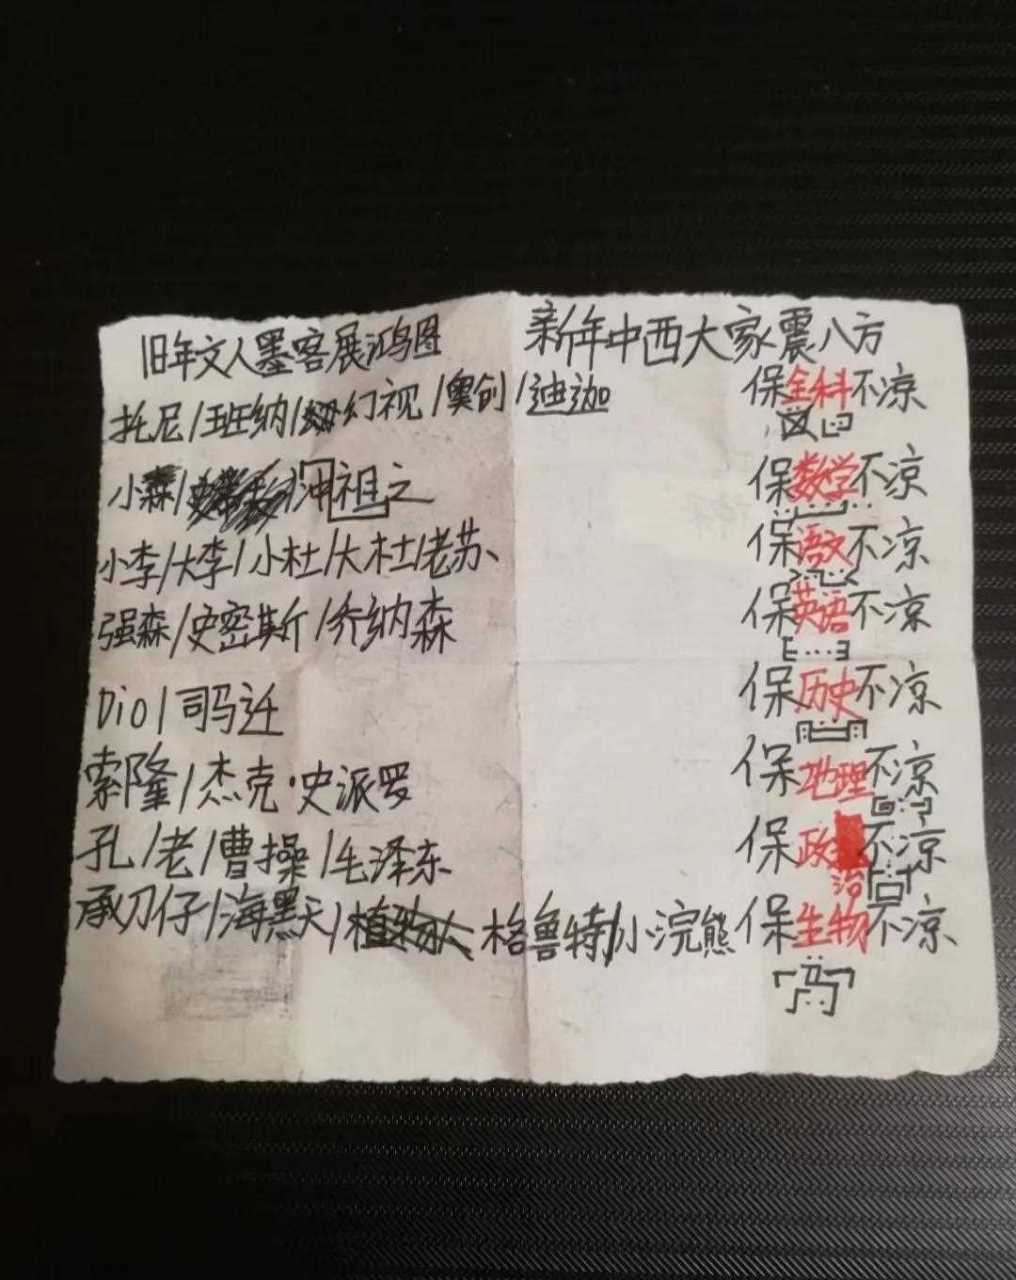 旧年文人墨客展鸿图 新年中西大家震八方
托尼/班纳/幻视/奥创/迪迦 保全科不凉
小森/冲祖之 保数学不凉
小李/大李/小杜/大杜/老苏、 保语文不凉
强森/史密斯/乔纳森 保英语不凉
Dio/司马迁 保历史不凉
索隆/杰克·史派罗 保地理不凉
孔/老/曹操/毛泽东 保政治不凉
承刀仔/海黑天/植物人格鲁特/小浣熊 保生物不凉